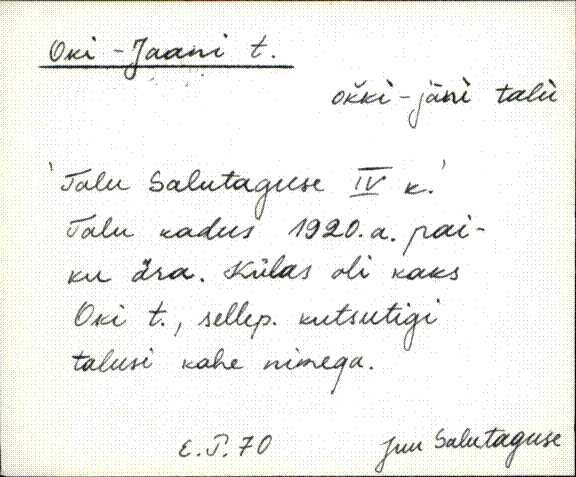 Oki - Jaani t.
okki - jāni talù
'Talu Salutaguse IV k.'
Talu kadus 1920.a. pai-
ku ära. Külas oli kaks
Oki t., sellep. kutsutigi
talusi kahe nimega.
E.T.70 Juu Salutaguse